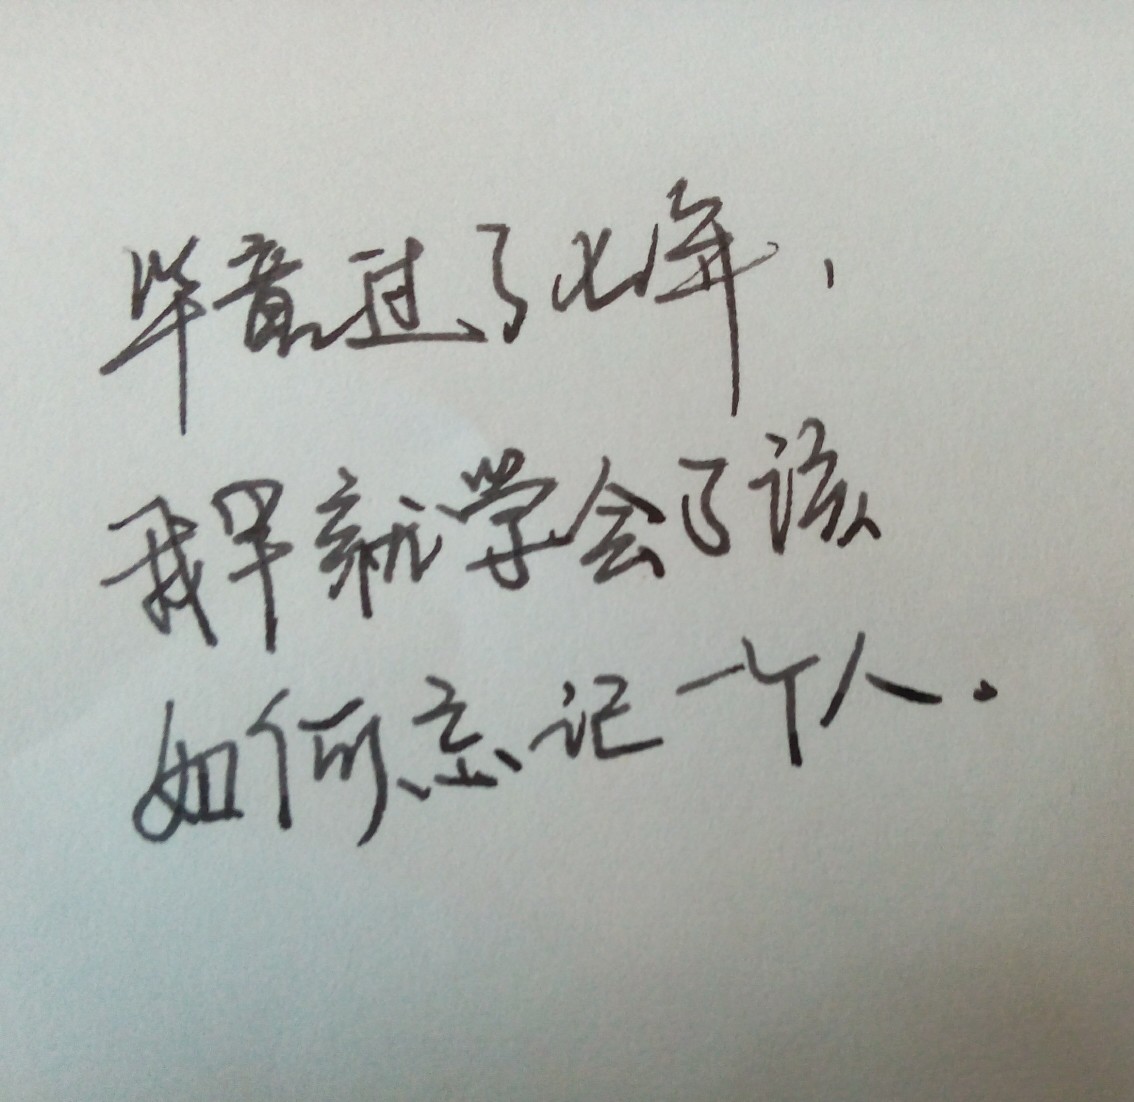 毕竟过了七年，
我早就学会了该
如何忘记一个人.